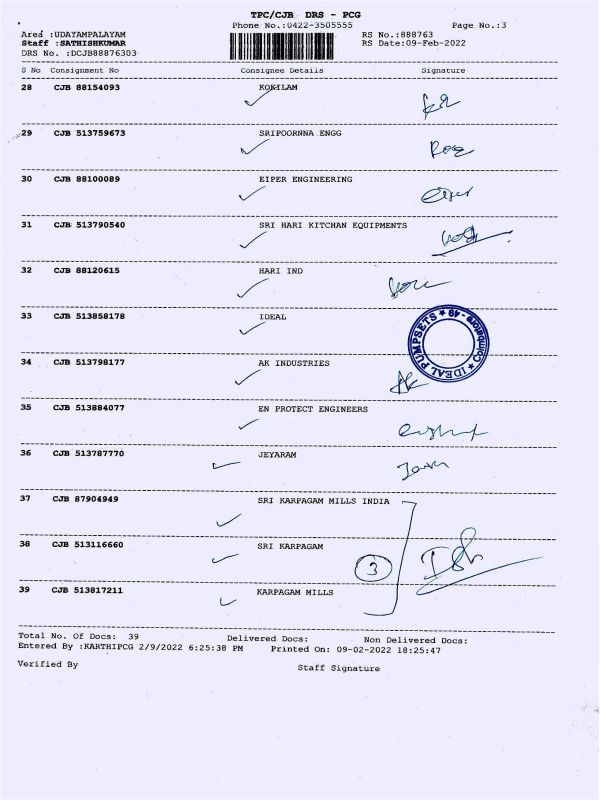 TPC/CJB DRS - PCG
Phone No.:0422-3505555 Page No.:3
Area :UDAYAMPALAYAM RS No.:888763
Staff :SATHISHKUMAR RS Date:09-Feb-2022
DRS No. :DCJB88876303
S No Consignment No Consignee Details Signature
28 CJB 88154093 KOKILAM
29 CJB 513759673 SRIPOORNNA ENGG
30 CJB 88100089 EIPER ENGINEERING
31 CJB 513790540 SRI HARI KITCHAN EQUIPMENTS
32 CJB 88120615 HARI IND
33 CJB 513858178 IDEAL
IDEAL PUMPSETS ★ Coimbatore - 49 ★
34 CJB 513798177 AK INDUSTRIES
35 CJB 513884077 EN PROTECT ENGINEERS
36 CJB 513787770 JEYARAM
37 CJB 87904949 SRI KARPAGAM MILLS INDIA
38 CJB 513116660 SRI KARPAGAM
3
39 CJB 513817211 KARPAGAM MILLS
Total No. Of Docs: 39 Delivered Docs: Non Delivered Docs:
Entered By :KARTHIPCG 2/9/2022 6:25:38 PM Printed On: 09-02-2022 18:25:47
Verified By Staff Signature